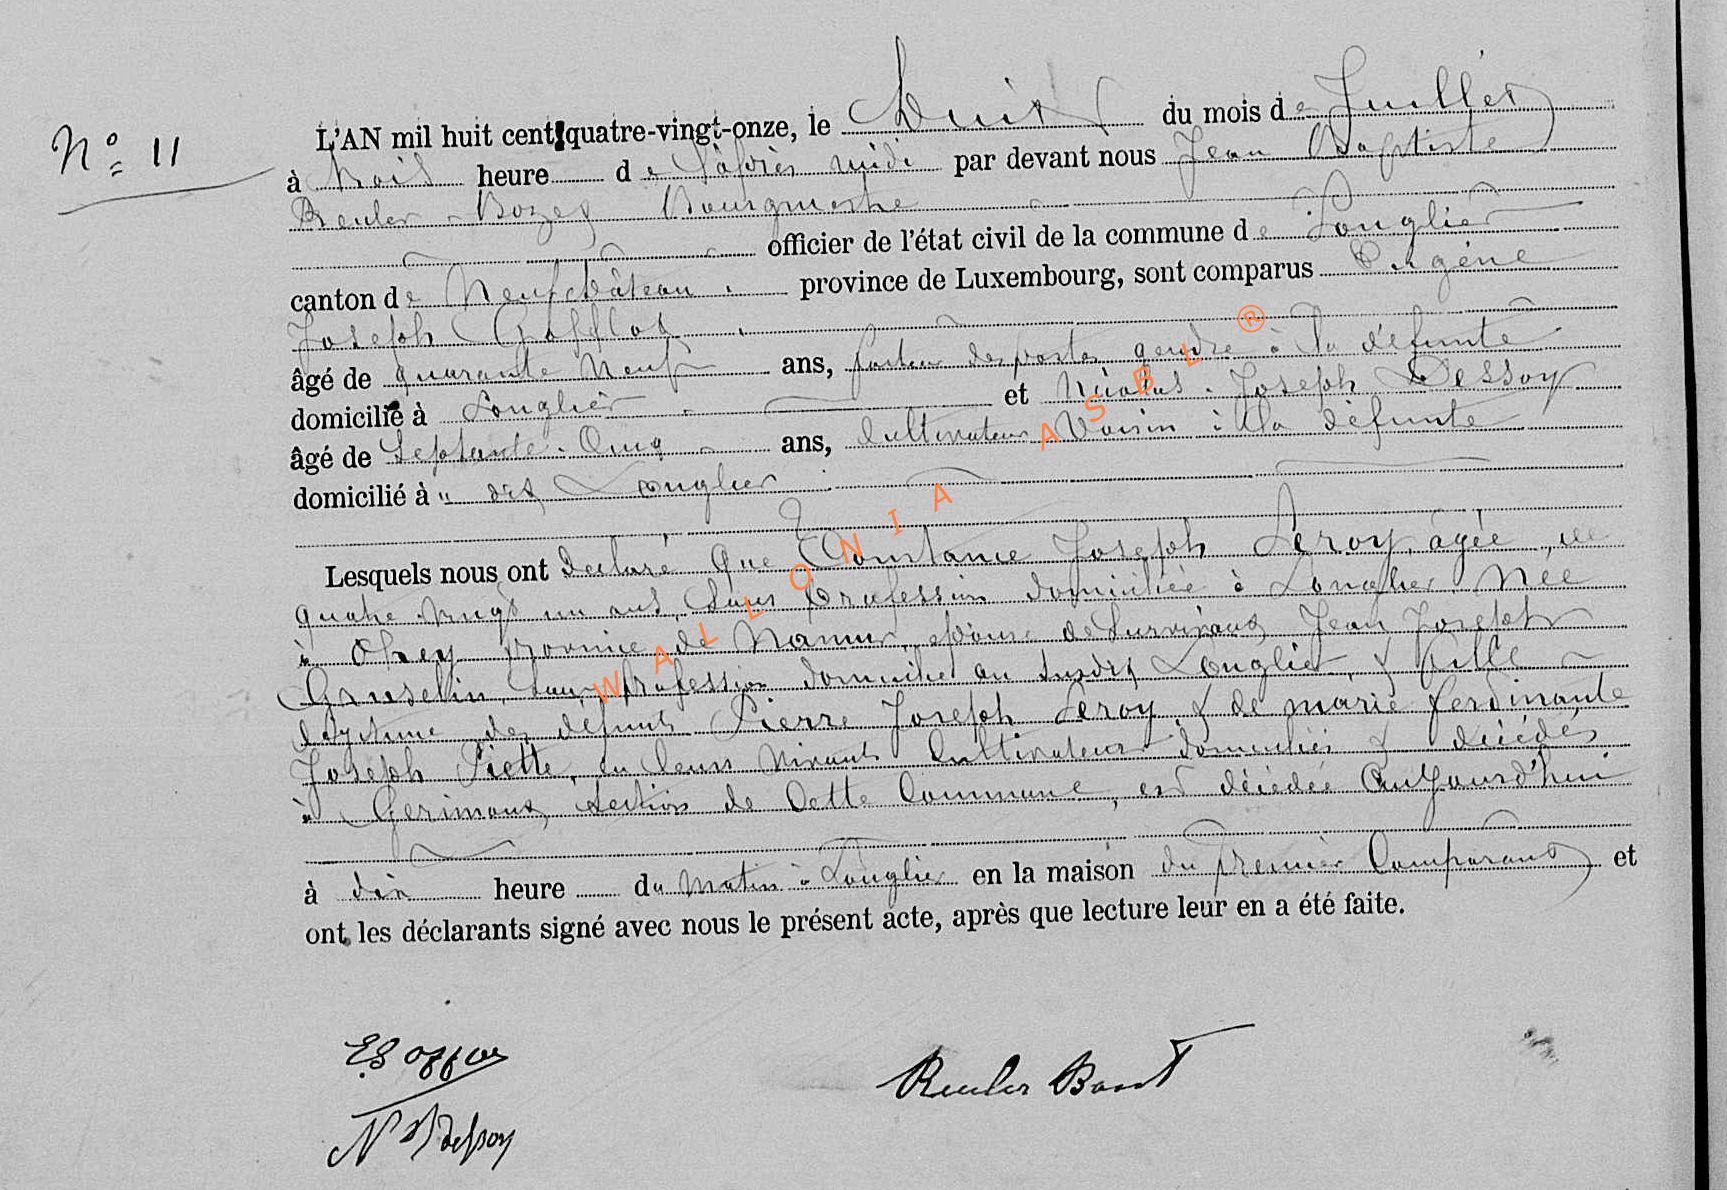 N° 11
L'AN mil huit cent quatre-vingt-onze, le huit du mois de Juillet
à trois heure de l'après midi par devant nous Jean Baptiste
Reuler - Bozet Bourgmestre
officier de l'état civil de la commune de Longlier
canton de Neufchâteau province de Luxembourg, sont comparus Eugène
Joseph Gofflot
âgé de quarante neuf ans, facteur des postes gendre à la défunte
domicilié à Longlier et Nicolas Joseph Dessoy
âgé de septante cinq ans, Cultivateur Voisin à la défunte
domicilié à u dit Longlier
Lesquels nous ont declaré que Constance Joseph Leroy, agée de
quatre vingt un ans, sans profession domiciliée à Longlier, Née
à Ohey province de Namur, épouse de survivant Jean Joseph
Gauselin, sans profession domicilié au susdit Longlier, & fille
légitime des défunts Pierre Joseph Leroy & de marie ferdinante
Joseph Piette, en leurs vivants Cultivateurs domiciliés & décédés
à Gerimont, section de Cette Commune, est décédée Aujourd'hui
à dix heure du matin à Longlier en la maison du premier Comparant et
ont les déclarants signé avec nous le présent acte, après que lecture leur en a été faite.
Reuler
N Dessoy
WALLONIA ASBL ®